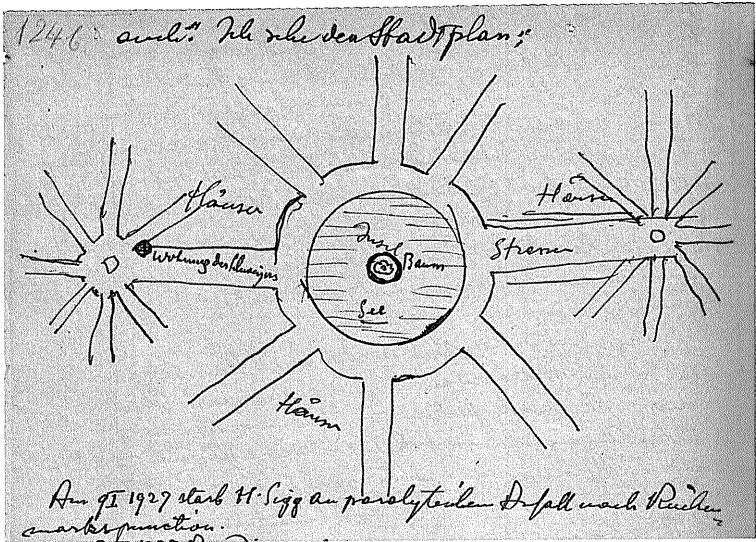 124b. auch: Ich sehe den Stadtplan:
Häuser
Häuser
Wohnung des Schweizers
Insel
Baum
Strassen
See
Häuser
Am 9 I 1927 starb H. Sigg an paralytischem Anfall nach Rücken-
markspunction.